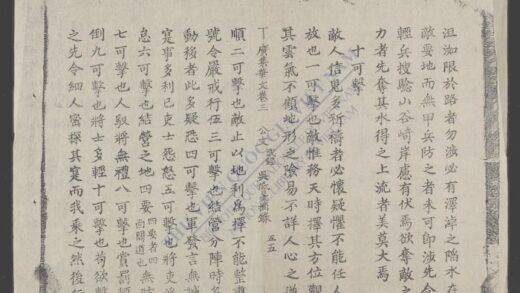 沮洳限於路者勿渡必有渾淖之陷水在
敵要地而無甲兵防之者未可卽渡先令
輕兵搜騐山谷崎岸應有伏焉欲奪敵之
力者先奪其水得之上流者美莫大焉
十可擊
敵人信見多祈禱者必懷疑懼不能任人
放也一可擊也敵惟務天時擇其方位觀
其雲氣不顧地形之險易不詳人心之逆
廣集華文卷三 公 五五
順二可擊也敵止以地利爲擇不能整
號令嚴戒行伍三可擊也結營分陣時多
動移者此多疑四可擊也軍發言無誠
寔事多利已吏士怨怒五可擊也將吏
息六可擊也結營之地四要四要者四面關道也無防
七可擊也人馭將無禮八可擊也賞罰顛
倒九可擊也將士多輕十可擊也苟欲擊
之先令細人密探其寔而我乘之然後行